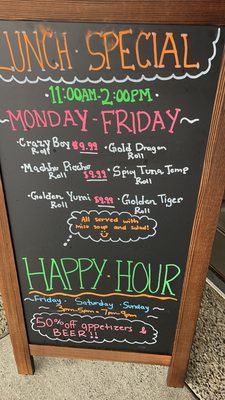 LUNCH · SPECIAL
· 11:00AM-2:00PM ·
~ MONDAY - FRIDAY ~
· Crazy Boy Roll $9.99 · Gold Dragon Roll
· Machu Picchu Roll $9.99 · Spicy Tuna Temp Roll
· Golden Yurai Roll $9.99 · Golden Tiger Roll
All served with
miso soup and salad!
HAPPY · HOUR
Friday · Saturday · Sunday
3pm-5pm & 7pm-9pm
50% off appetizers &
BEER!!